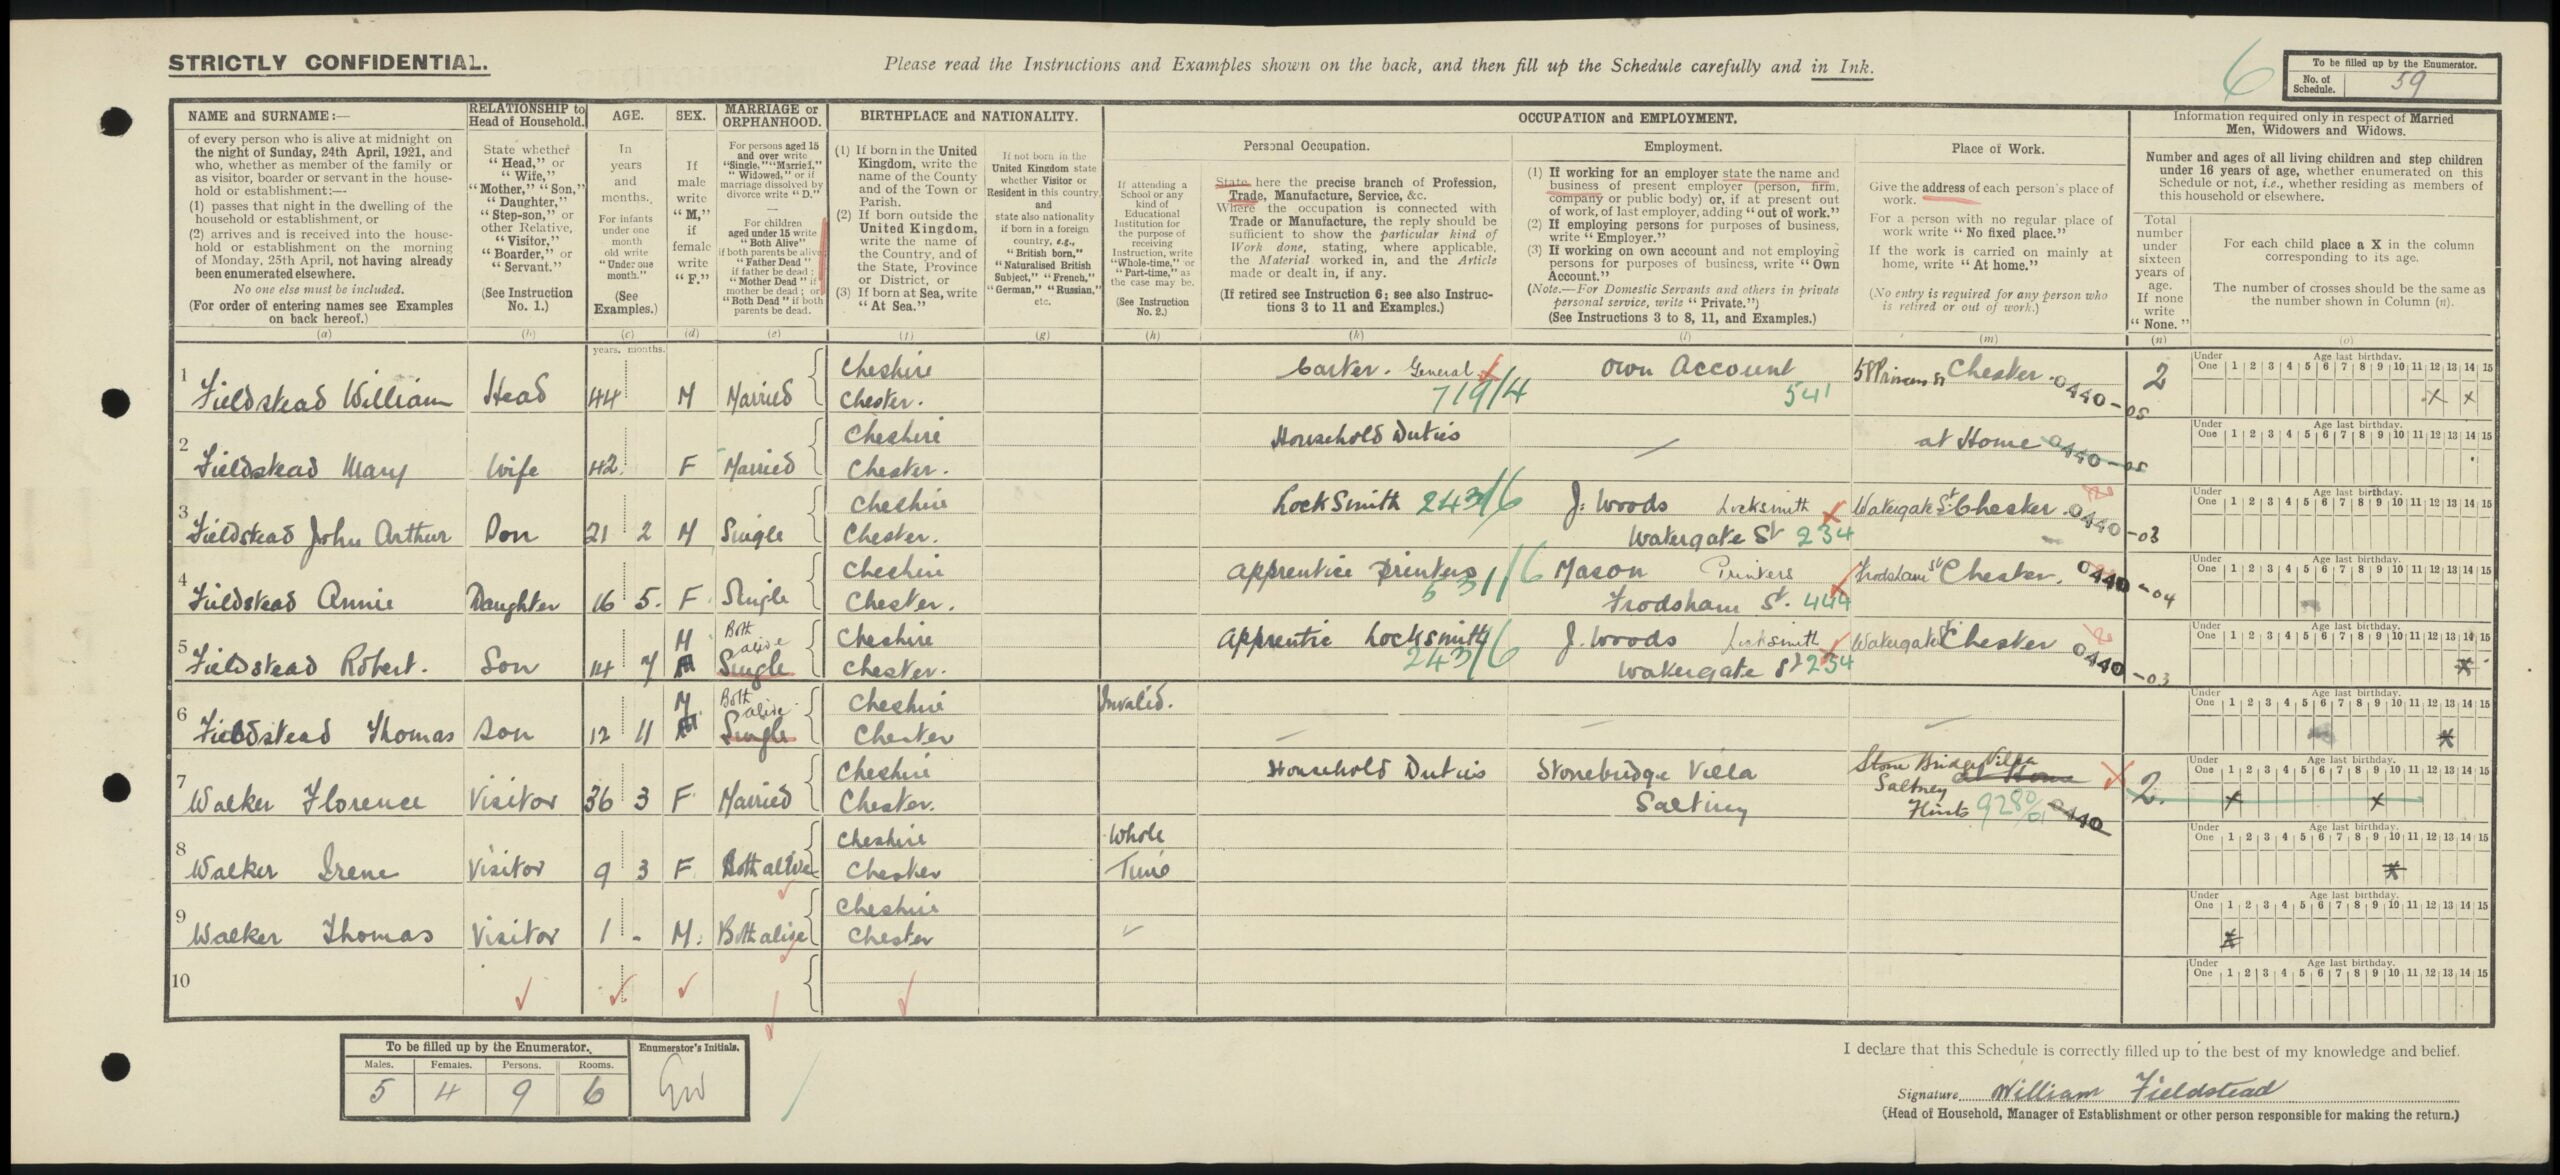 STRICTLY CONFIDENTIAL.
Please read the Instructions and Examples shown on the back, and then fill up the Schedule carefully and in Ink.
6
To be filled up by the Enumerator.
No. of Schedule. 59
NAME and SURNAME:—
of every person who is alive at midnight on
the night of Sunday, 24th April, 1921, and
who, whether as member of the family or
as visitor, boarder or servant in the house-
hold or establishment:—
(1) passes that night in the dwelling of the
household or establishment, or
(2) arrives and is received into the house-
hold or establishment on the morning
of Monday, 25th April, not having already
been enumerated elsewhere.
No one else must be included.
(For order of entering names see Examples
on back hereof.)
(a)
RELATIONSHIP to
Head of Household.
State whether
"Head," or
"Wife,"
"Mother," "Son,"
"Daughter,"
"Step-son," or
other Relative,
"Visitor,"
"Boarder," or
"Servant."
(See Instruction
No. 1.)
(b)
AGE.
In
years
and
months.
For infants
under one
month
old write
"Under one
month."
(See
Examples.)
(c)
years. months.
SEX.
If
male
write
"M,"
if
female
write
"F."
(d)
MARRIAGE or
ORPHANHOOD.
For persons aged 15
and over write
"Single," "Married,"
"Widowed," or if
marriage dissolved by
divorce write "D."
For children
aged under 15 write
"Both Alive"
if both parents be alive;
"Father Dead"
if father be dead;
"Mother Dead" if
mother be dead; or
"Both Dead" if both
parents be dead.
(e)
BIRTHPLACE and NATIONALITY.
(1) If born in the United
Kingdom, write the
name of the County
and of the Town or
Parish.
(2) If born outside the
United Kingdom,
write the name of
the Country, and of
the State, Province
or District, or
(3) If born at Sea, write
"At Sea."
(f)
If not born in the
United Kingdom state
whether Visitor or
Resident in this country,
and
state also nationality
if born in a foreign
country, e.g.,
"British born,"
"Naturalised British
Subject," "French,"
"German," "Russian,"
etc.
(g)
OCCUPATION and EMPLOYMENT.
If attending a
School or any
kind of
Educational
Institution for
the purpose of
receiving
Instruction, write
"Whole-time," or
"Part-time," as
the case may be.
(See Instruction
No. 2.)
(h)
Personal Occupation.
State here the precise branch of Profession,
Trade, Manufacture, Service, &c.
Where the occupation is connected with
Trade or Manufacture, the reply should be
sufficient to show the particular kind of
Work done, stating, where applicable,
the Material worked in, and the Article
made or dealt in, if any.
(If retired see Instruction 6; see also Instruc-
tions 3 to 11 and Examples.)
(k)
Employment.
(1) If working for an employer state the name and
business of present employer (person, firm,
company or public body) or, if at present out
of work, of last employer, adding "out of work."
(2) If employing persons for purposes of business,
write "Employer."
(3) If working on own account and not employing
persons for purposes of business, write "Own
Account."
(Note.—For Domestic Servants and others in private
personal service, write "Private.")
(See Instructions 3 to 8, 11, and Examples.)
(l)
Place of Work.
Give the address of each person's place of
work.
For a person with no regular place of
work write "No fixed place."
If the work is carried on mainly at
home, write "At home."
(No entry is required for any person who
is retired or out of work.)
(m)
Information required only in respect of Married
Men, Widowers and Widows.
Number and ages of all living children and step children
under 16 years of age, whether enumerated on this
Schedule or not, i.e., whether residing as members of
this household or elsewhere.
Total
number
under
sixteen
years of
age.
If none
write
"None."
(n)
For each child place a X in the column
corresponding to its age.
The number of crosses should be the same as
the number shown in Column (n).
(o)
Age last birthday.
Under One 1 2 3 4 5 6 7 8 9 10 11 12 13 14 15
1 Fieldstead William Head 44 M Married Cheshire Chester. Carter. General 719/4 Own Account 541 58 Princess St Chester. 0440-05 2 x x
Age last birthday.
Under One 1 2 3 4 5 6 7 8 9 10 11 12 13 14 15
2 Fieldstead Mary Wife 42 F Married Cheshire Chester. Household Duties — at Home 0440-05
Age last birthday.
Under One 1 2 3 4 5 6 7 8 9 10 11 12 13 14 15
3 Fieldstead John Arthur Son 21 2 M Single Cheshire Chester. LockSmith 243/6 J. Woods Locksmith Watergate St 234 Watergate St Chester. 0440-03
Age last birthday.
Under One 1 2 3 4 5 6 7 8 9 10 11 12 13 14 15
4 Fieldstead Annie Daughter 16 5. F Single Cheshire Chester. Apprentice Printers 531/6 Mason Printers Frodsham St. 444 Frodsham St Chester. 0440-04
Age last birthday.
Under One 1 2 3 4 5 6 7 8 9 10 11 12 13 14 15
5 Fieldstead Robert. Son 14 7 M Both alive Single Cheshire Chester. Apprentic Locksmith 243/6 J. Woods Locksmith Watergate St 234 Watergate St Chester 0440-03 x
Age last birthday.
Under One 1 2 3 4 5 6 7 8 9 10 11 12 13 14 15
6 Fieldstead Thomas Son 12 11 M Both alive. Single Cheshire Chester Invalid. — — — x
Age last birthday.
Under One 1 2 3 4 5 6 7 8 9 10 11 12 13 14 15
7 Walker Florence Visitor 36 3 F. Married Cheshire Chester. Household Duties Stonebridge Villa Saltney Stone Bridge Villa at Home Saltney Flints 9280/01 0440 2. x x
Age last birthday.
Under One 1 2 3 4 5 6 7 8 9 10 11 12 13 14 15
8 Walker Irene Visitor 9 3 F. Both alive Cheshire Chester Whole Time x
Age last birthday.
Under One 1 2 3 4 5 6 7 8 9 10 11 12 13 14 15
9 Walker Thomas Visitor 1 - M. Both alive Cheshire Chester x
Age last birthday.
Under One 1 2 3 4 5 6 7 8 9 10 11 12 13 14 15
10
To be filled up by the Enumerator.
Males. Females. Persons. Rooms.
5 4 9 6
Enumerator's Initials.
GW
I declare that this Schedule is correctly filled up to the best of my knowledge and belief.
Signature William Fieldstead
(Head of Household, Manager of Establishment or other person responsible for making the return.)